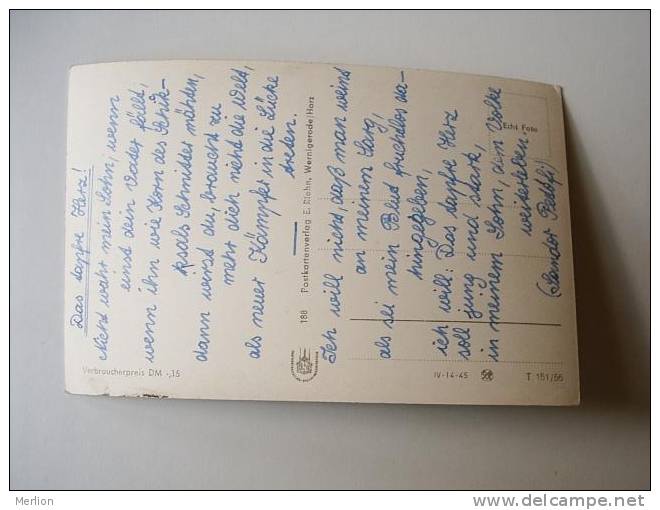 Das tapfre Herz!
Nicht wahr mein Sohn, wenn
einst dein Vater fällt,
wenn ihn wie Korn des Schik-
ksals Schnitter mähten,
dann wirst du, brauchst du
mehr dich nicht die Welt,
als neuer Kämpfer in die Lücke
treten.
Ich will nicht, daß man weint
an meinem Sarg,
als sei mein Blut fruchtlos da-
hingegeben,
ich will: Das tapfre Herz
soll jung und stark,
in meinem Sohn, dem Volke
weiterleben.
(Sandor Petöfi)
188 Postkartenverlag E. Riehn, Wernigerode/Harz
Echt Foto
Verbraucherpreis DM -,15
IV-14-45
T 151/56
Merlion
www.delcampe.net